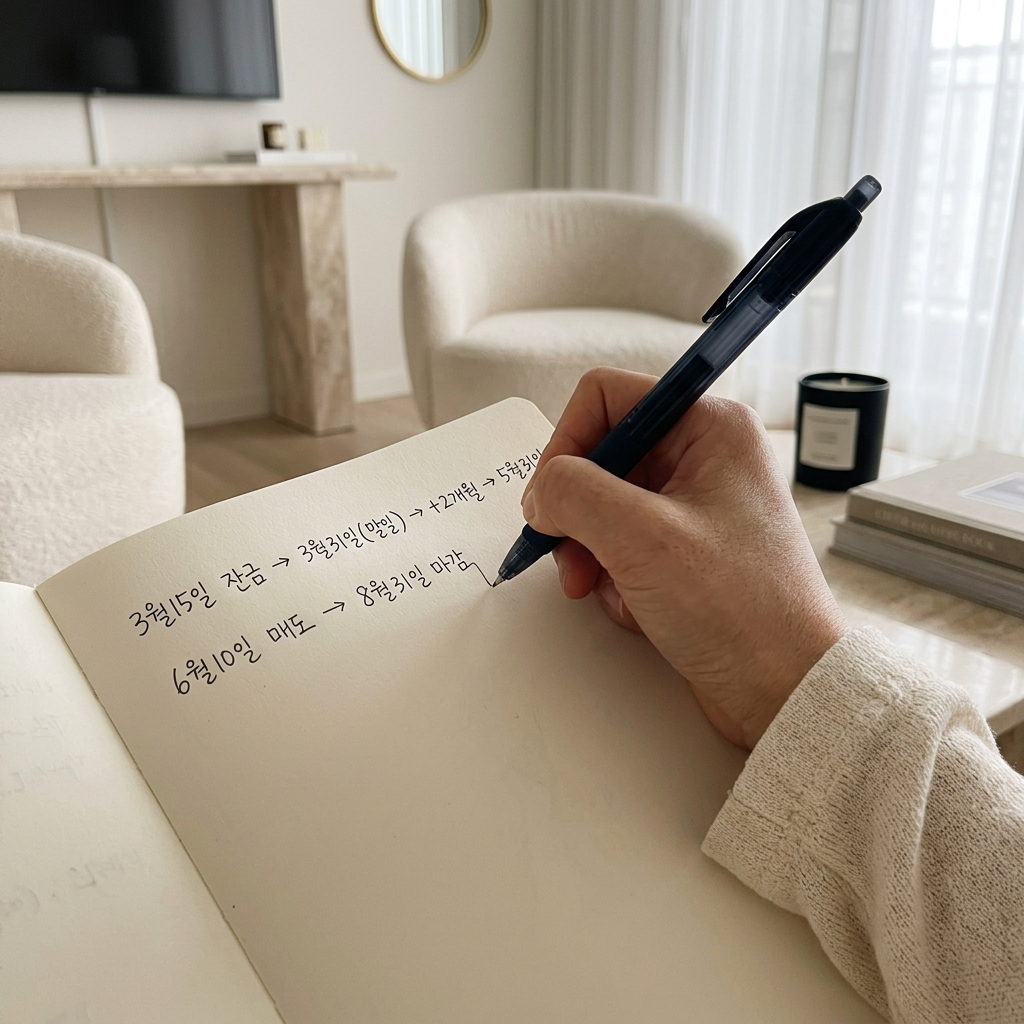 3월15일 잔금 → 3월31일(말일) → +2개월 → 5월31일
6월10일 매도 → 8월31일 마감